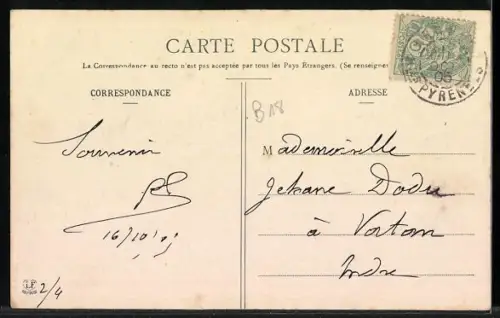 CARTE POSTALE
La Correspondance au recto n'est pas acceptée par tous les Pays Etrangers. (Se renseigner
CORRESPONDANCE
ADRESSE
B18
Souvenir
16/10
Mademoiselle
Dodu
à Vatan
Indre
2/4
05
PYRENEES